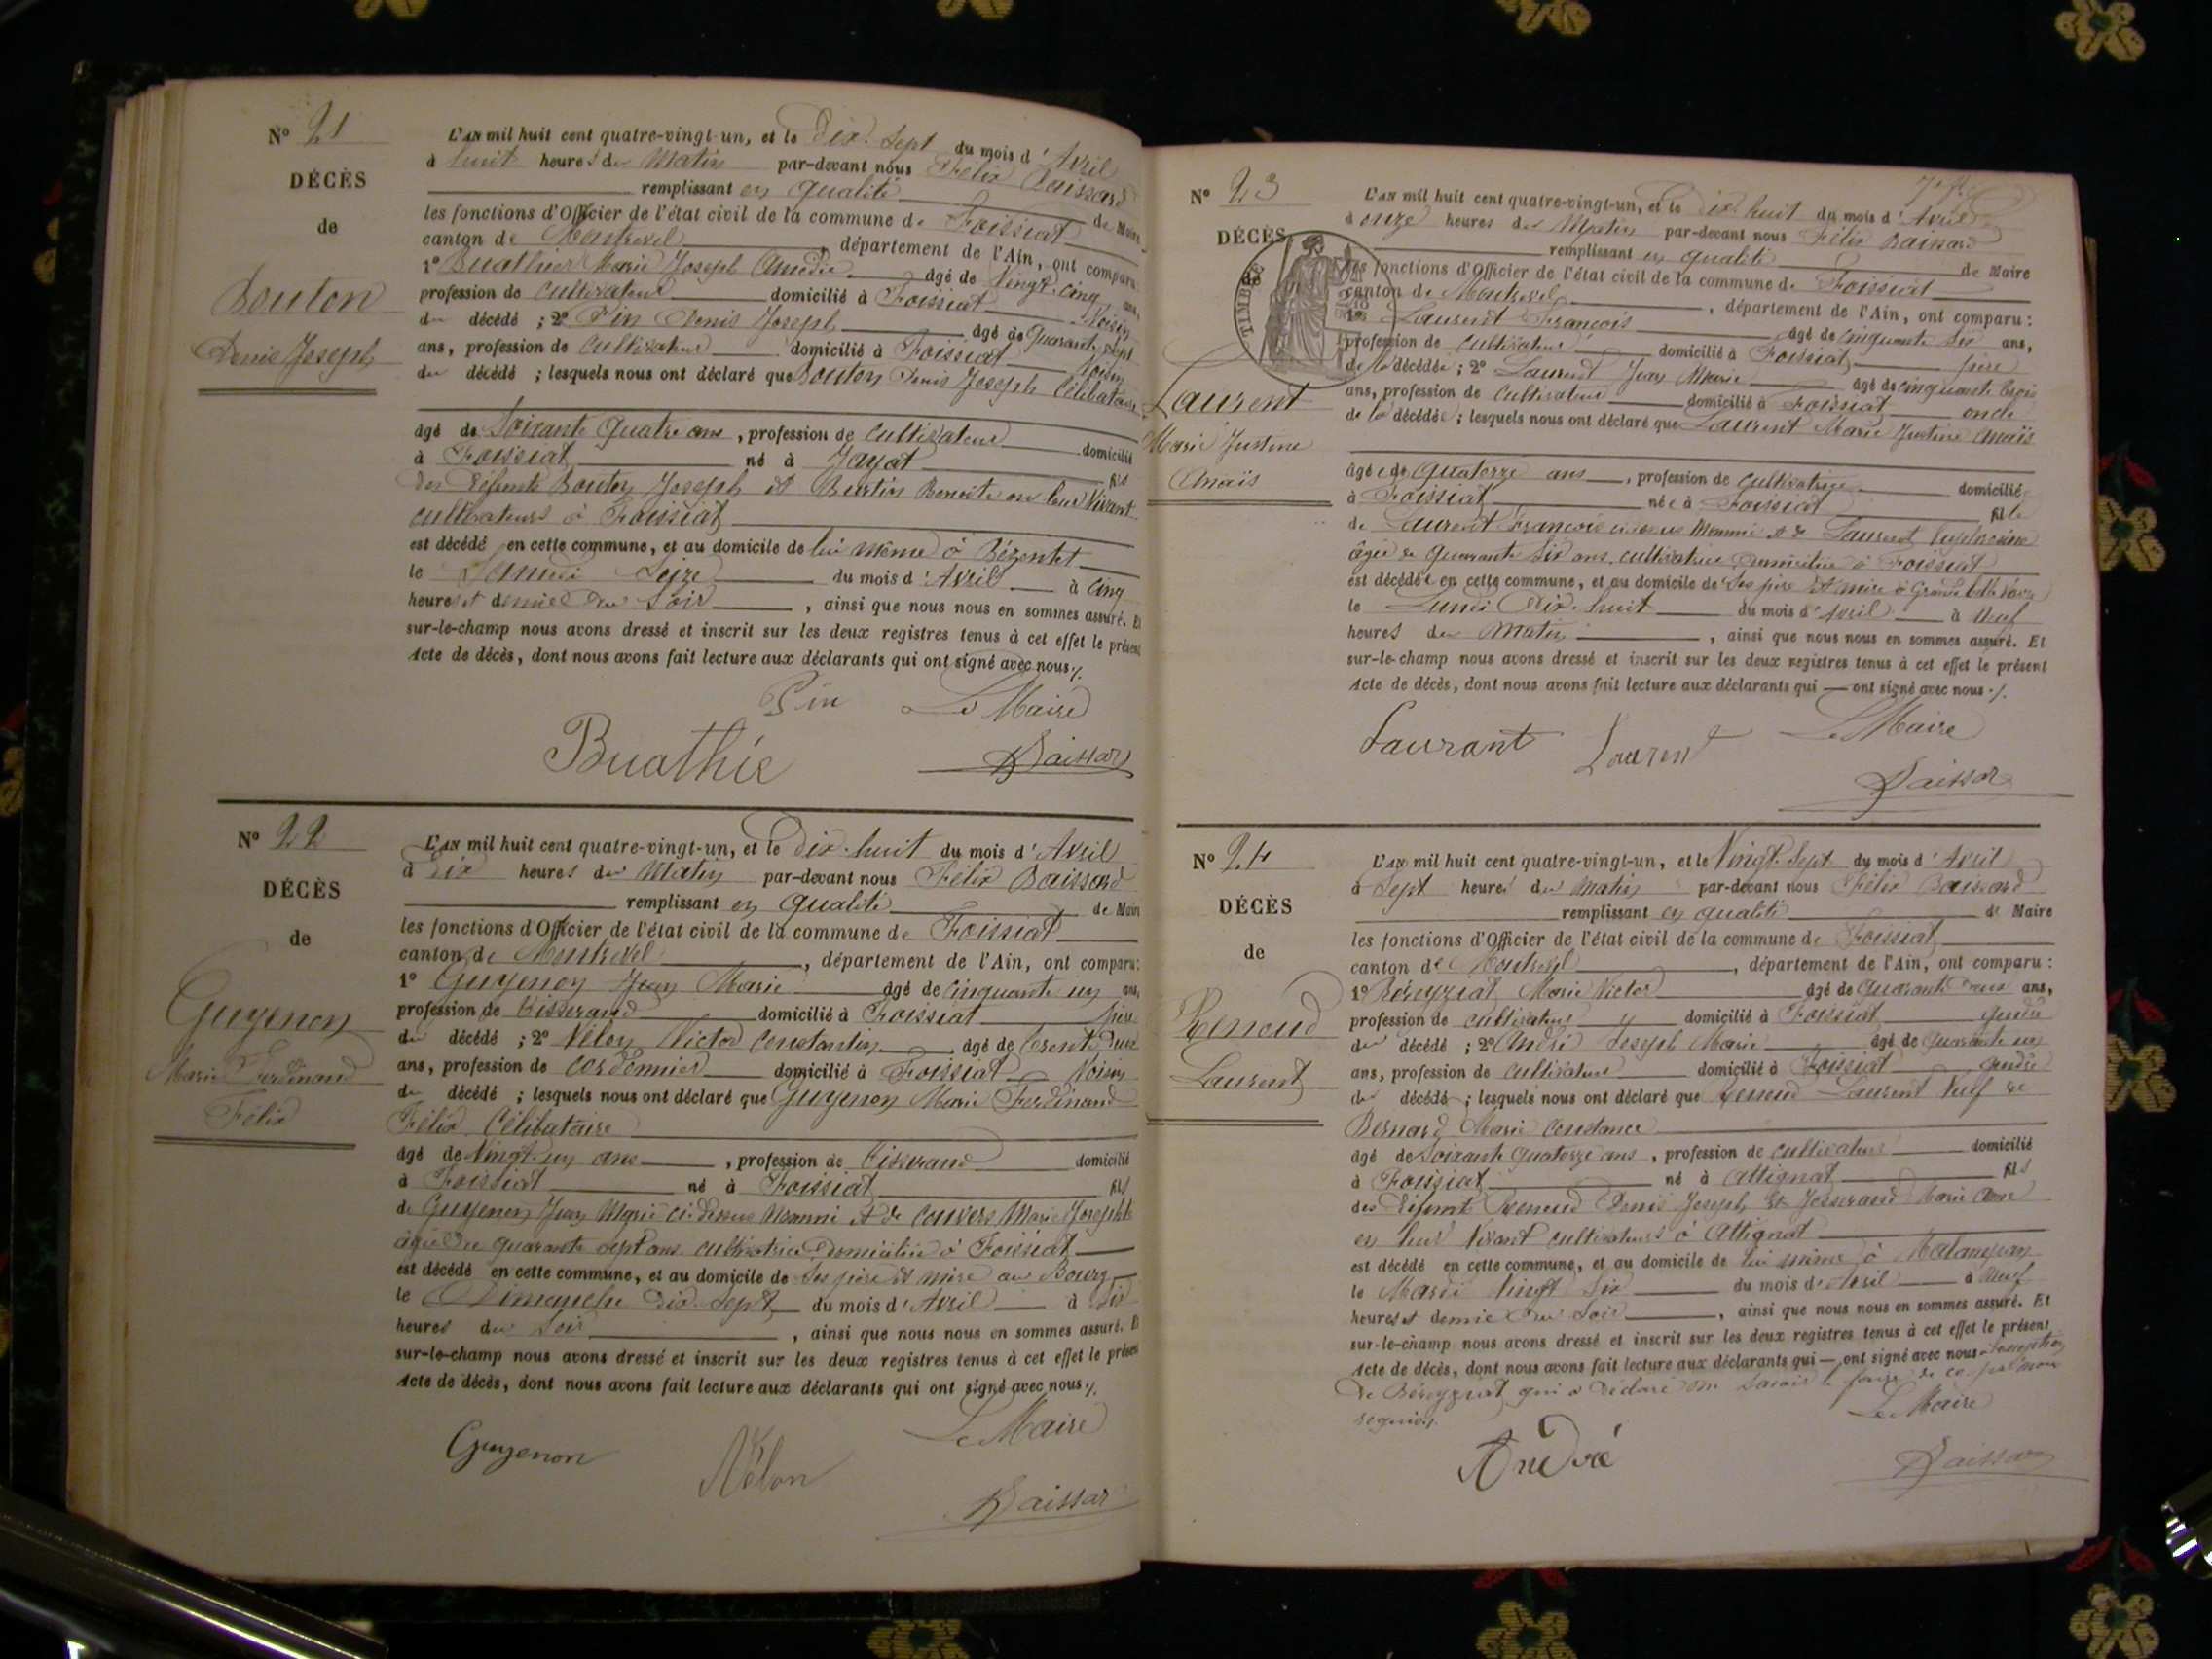 N° 21
DÉCÈS
de
Bouton
Denis Joseph
L'an mil huit cent quatre-vingt-un, et le Dix-Sept du mois d'Avril
à huit heures du Matin par-devant nous Félix Baissard
remplissant en qualité de Maire
les fonctions d'Officier de l'état civil de la commune de Foissiat
canton de Montrevel, département de l'Ain, ont comparu
1° Buathier Marie Joseph Amédée âgé de Vingt-cinq ans,
profession de Cultivateur domicilié à Foissiat Voisin
du décédé ; 2° Pin Denis Joseph âgé de Quarante sept
ans, profession de Cultivateur domicilié à Foissiat Voisin
du décédé ; lesquels nous ont déclaré que Bouton Denis Joseph Célibataire
âgé de Soixante Quatre ans, profession de Cultivateur domicilié
à Foissiat né à Jayat fils
des défunts Bouton Joseph et Burtin Benoite en leur Vivant
cultivateurs à Foissiat
est décédé en cette commune, et au domicile de lui même à Bézentet
le Samedi Seize du mois d'Avril à Cinq
heures et demie du Soir, ainsi que nous nous en sommes assuré. Et
sur-le-champ nous avons dressé et inscrit sur les deux registres tenus à cet effet le présent
Acte de décès, dont nous avons fait lecture aux déclarants qui ont signé avec nous ./.
Pin Le Maire
Buathié Baissard
N° 22
DÉCÈS
de
Guyenon
Marie Ferdinand
Félix
L'an mil huit cent quatre-vingt-un, et le Dix-huit du mois d'Avril
à Dix heures du Matin par-devant nous Félix Baissard
remplissant en qualité de Maire
les fonctions d'Officier de l'état civil de la commune de Foissiat
canton de Montrevel, département de l'Ain, ont comparu :
1° Guyenon Jean Marie âgé de cinquante un ans,
profession de tisserand domicilié à Foissiat père
du décédé ; 2° Vélon Victor Constantin âgé de trente deux
ans, profession de cordonnier domicilié à Foissiat Voisin
du décédé ; lesquels nous ont déclaré que Guyenon Marie Ferdinand
Félix Célibataire
âgé de Vingt-un ans, profession de tisserand domicilié
à Foissiat né à Foissiat fils
de Guyenon Jean Marie ci-dessus Nommé et de Convers Marie Josephte
âgée de quarante sept ans cultivatrice domiciliée à Foissiat
est décédé en cette commune, et au domicile de Ses père et mère au Bourg
le Dimanche Dix-Sept du mois d'Avril à Dix
heures du Soir, ainsi que nous nous en sommes assuré. Et
sur-le-champ nous avons dressé et inscrit sur les deux registres tenus à cet effet le présent
Acte de décès, dont nous avons fait lecture aux déclarants qui ont signé avec nous ./.
Le Maire
Guyenon Vélon
Baissard
N° 23
DÉCÈS
de
TIMBRE
Laurent
Marie Justine
Anaïs
L'an mil huit cent quatre-vingt-un, et le Dix-huit du mois d'Avril
à onze heures du Matin par-devant nous Félix Baissard
remplissant en qualité de Maire
les fonctions d'Officier de l'état civil de la commune de Foissiat
canton de Montrevel, département de l'Ain, ont comparu :
1° Laurent François âgé de cinquante six ans,
profession de cultivateur domicilié à Foissiat père
de la décédée ; 2° Laurent Jean Marie âgé de cinquante trois
ans, profession de cultivateur domicilié à Foissiat oncle
de la décédée ; lesquels nous ont déclaré que Laurent Marie Justine Anaïs
âgée de Quatorze ans, profession de cultivatrice domiciliée
à Foissiat née à Foissiat fille
de Laurent François ci-dessus Nommé et de Laurent
âgée de quarante six ans cultivatrice domiciliée à Foissiat
est décédée en cette commune, et au domicile de Ses père et mère à
le Lundi Dix-huit du mois d'Avril à Neuf
heures du Matin, ainsi que nous nous en sommes assuré. Et
sur-le-champ nous avons dressé et inscrit sur les deux registres tenus à cet effet le présent
Acte de décès, dont nous avons fait lecture aux déclarants qui — ont signé avec nous ./.
Laurant Laurent Le Maire
Baissard
N° 24
DÉCÈS
de
Renoud
Laurent
L'an mil huit cent quatre-vingt-un, et le Vingt-Sept du mois d'Avril
à Sept heures du Matin par-devant nous Félix Baissard
remplissant en qualité de Maire
les fonctions d'Officier de l'état civil de la commune de Foissiat
canton de Montrevel, département de l'Ain, ont comparu :
1° Béreyziat Marie Victor âgé de quarante deux ans,
profession de cultivateur domicilié à Foissiat gendre
du décédé ; 2° André Joseph Marie âgé de Quarante un
ans, profession de cultivateur domicilié à Foissiat gendre
du décédé ; lesquels nous ont déclaré que Renoud Laurent Veuf de
Bernard Marie Constance
âgé de Soixante Quatorze ans, profession de cultivateur domicilié
à Foissiat né à Attignat fils
des défunts Renoud Denis Joseph et Josserand Marie Anne
en leur Vivant cultivateurs à Attignat
est décédé en cette commune, et au domicile de lui même à
le Mardi Vingt Six du mois d'Avril à Neuf
heures et demie du Soir, ainsi que nous nous en sommes assuré. Et
sur-le-champ nous avons dressé et inscrit sur les deux registres tenus à cet effet le présent
Acte de décès, dont nous avons fait lecture aux déclarants qui — ont signé avec nous à l'exception
de Béreyziat qui a déclaré ne savoir le faire de ce
requis ./.
Le Maire
André
Baissard